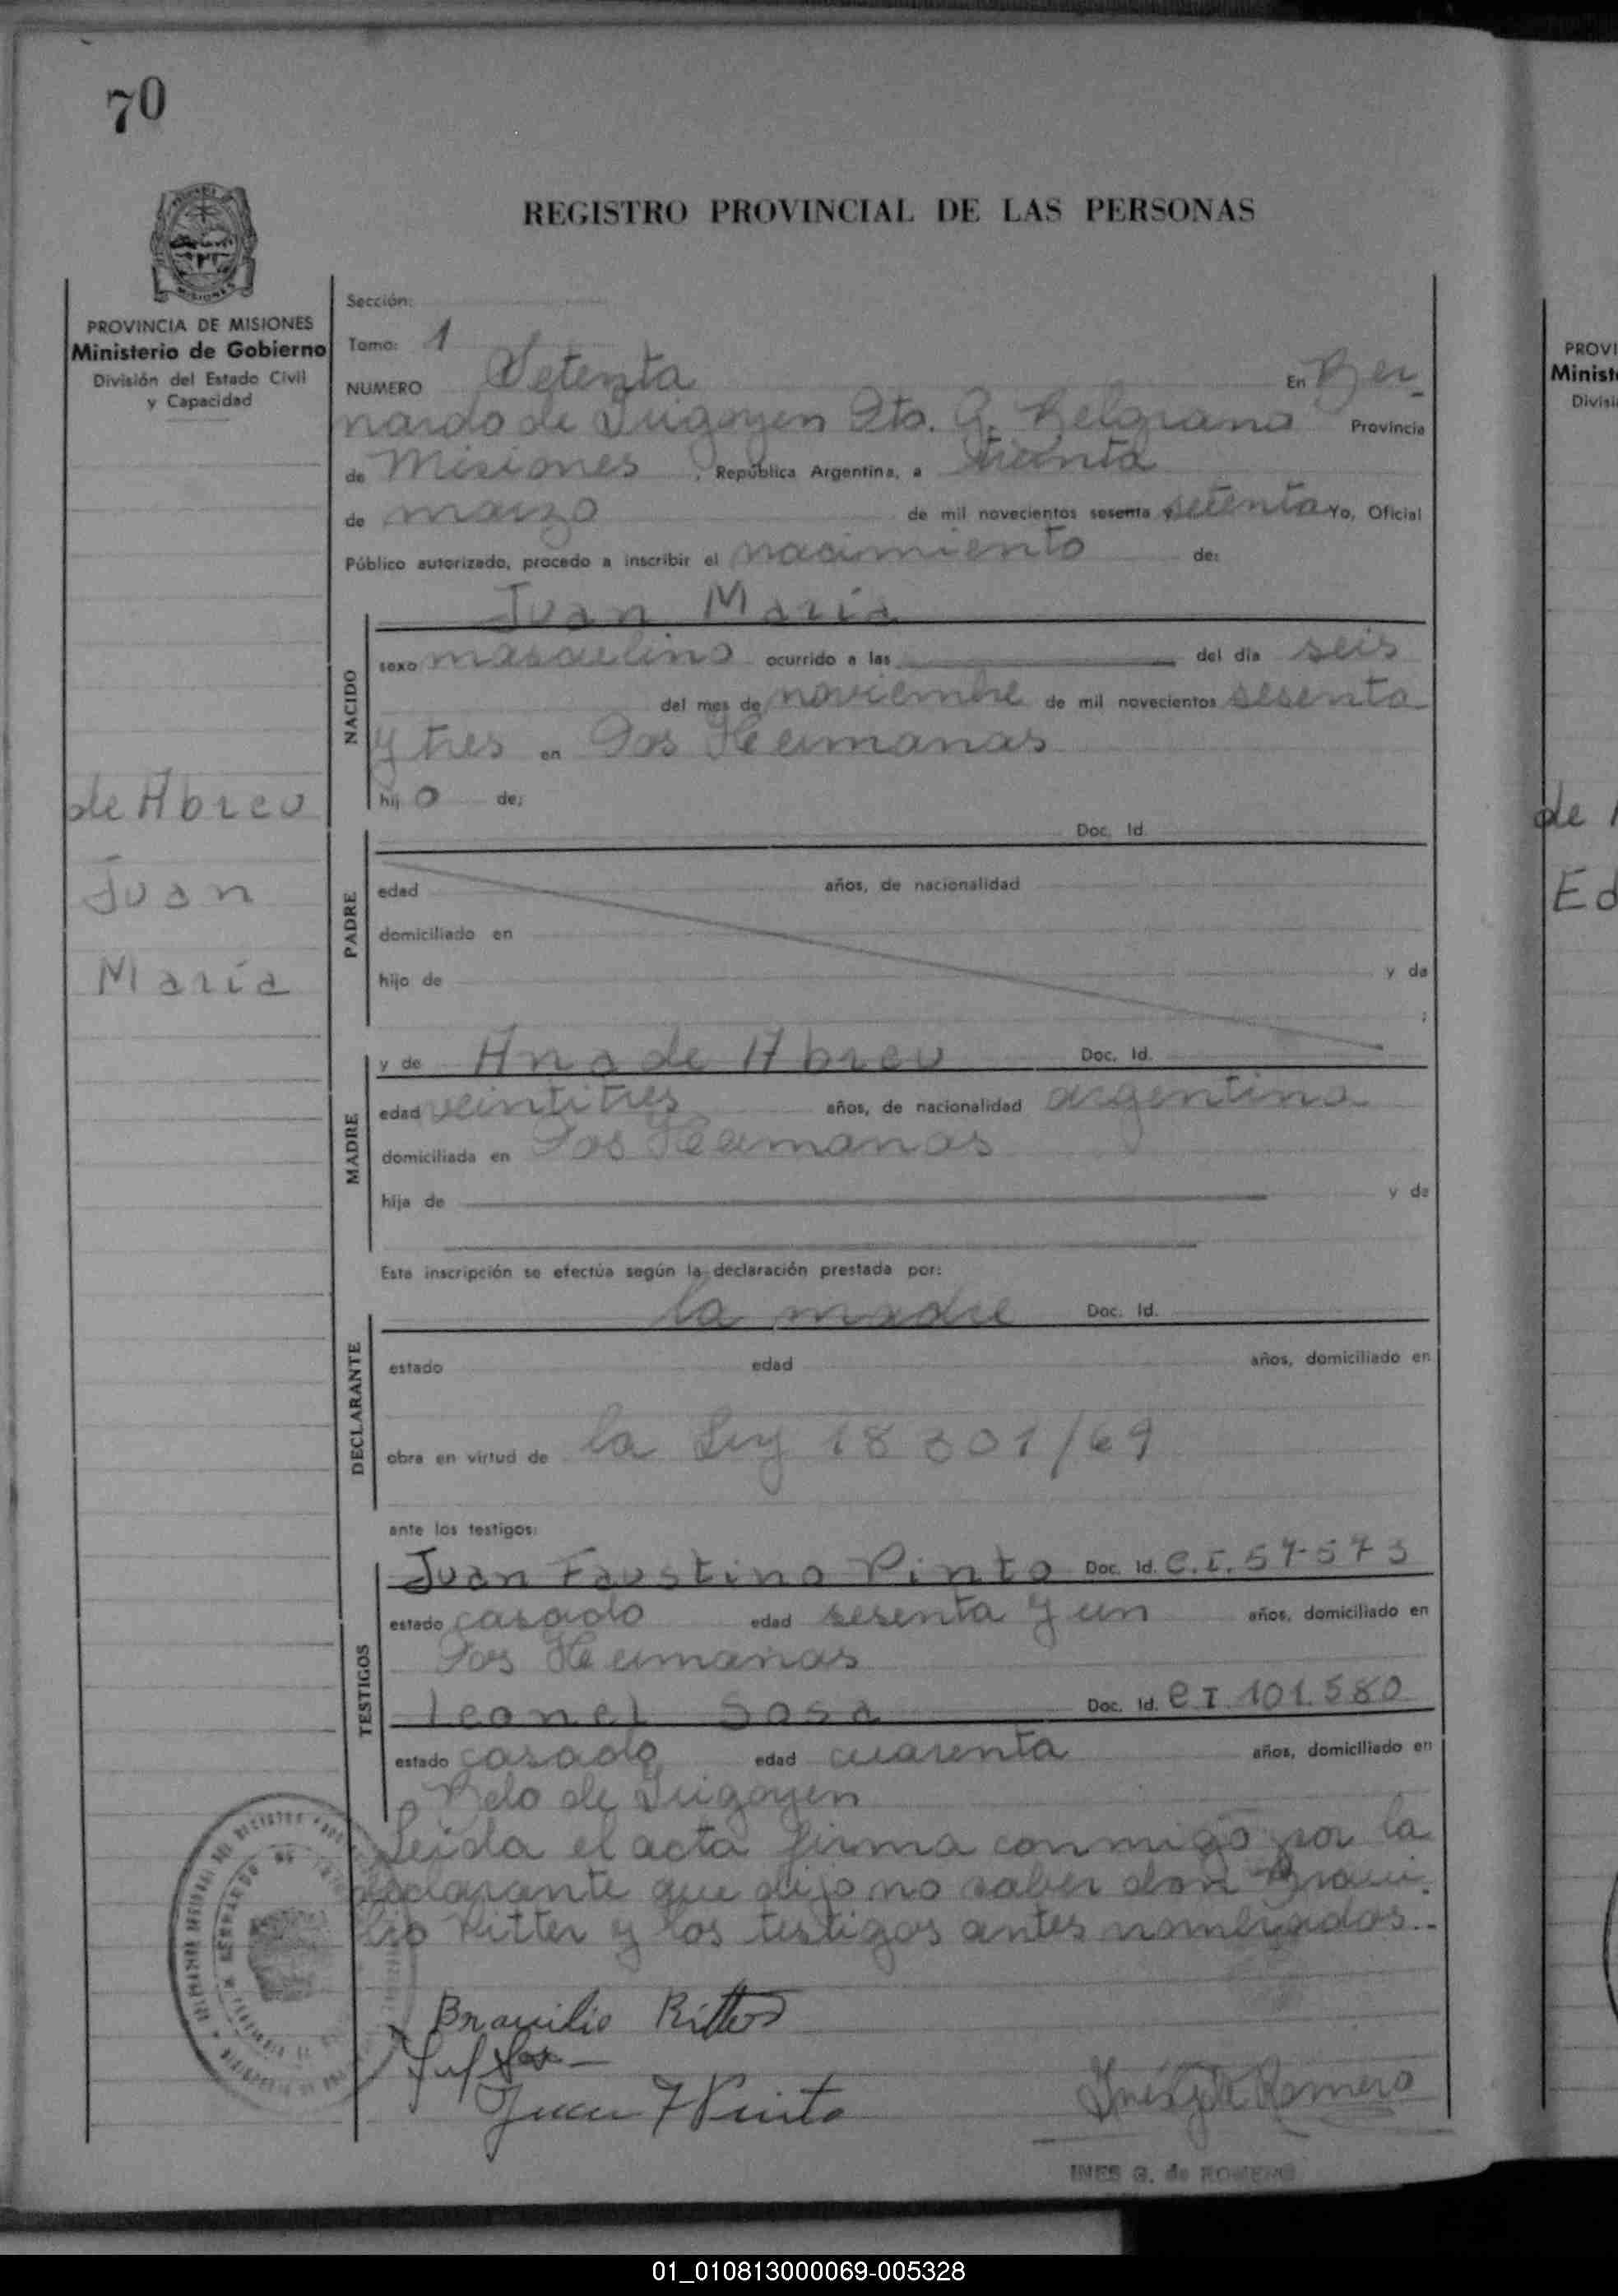 70
REGISTRO PROVINCIAL DE LAS PERSONAS
MISIONES
PROVINCIA DE MISIONES
Ministerio de Gobierno
División del Estado Civil
y Capacidad
Sección:
Tomo: 1
NUMERO Setenta En Ber-
nardo de Irigoyen Dto. G. Belgrano Provincia
de Misiones, República Argentina, a treinta
de marzo de mil novecientos sesenta y setenta Yo, Oficial
Público autorizado, procedo a inscribir el nacimiento de:
Juan María
NACIDO
sexo masculino ocurrido a las del día seis
del mes de noviembre de mil novecientos sesenta
y tres en Dos Hermanas
hij o de:
de Abreu
Juan
María
PADRE
Doc. Id.
edad años, de nacionalidad
domiciliado en
hijo de y de
;
MADRE
y de Ana de Abreu Doc. Id.
edad veintitres años, de nacionalidad argentina
domiciliada en Dos Hermanas
hija de y de
Esta inscripción se efectúa según la declaración prestada por:
DECLARANTE
la madre Doc. Id.
estado edad años, domiciliado en
obra en virtud de la Ley 18301/69
ante los testigos:
TESTIGOS
Juan Faustino Pinto Doc. Id. C.I. 57-573
estado casado edad sesenta y un años, domiciliado en
Dos Hermanas
Leonel Sosa Doc. Id. C I 101.580
estado casado edad cuarenta años, domiciliado en
Bdo de Irigoyen
Leída el acta firma conmigo por la
declarante que dijo no saber don Braui-
lio Ritter y los testigos antes nombrados.-
Brauilio Ritter
Juan F Pinto
Inés G de Romero
INES G. de ROMERO
PROVI
Minist
Divisi
de
Ed
01_010813000069-005328